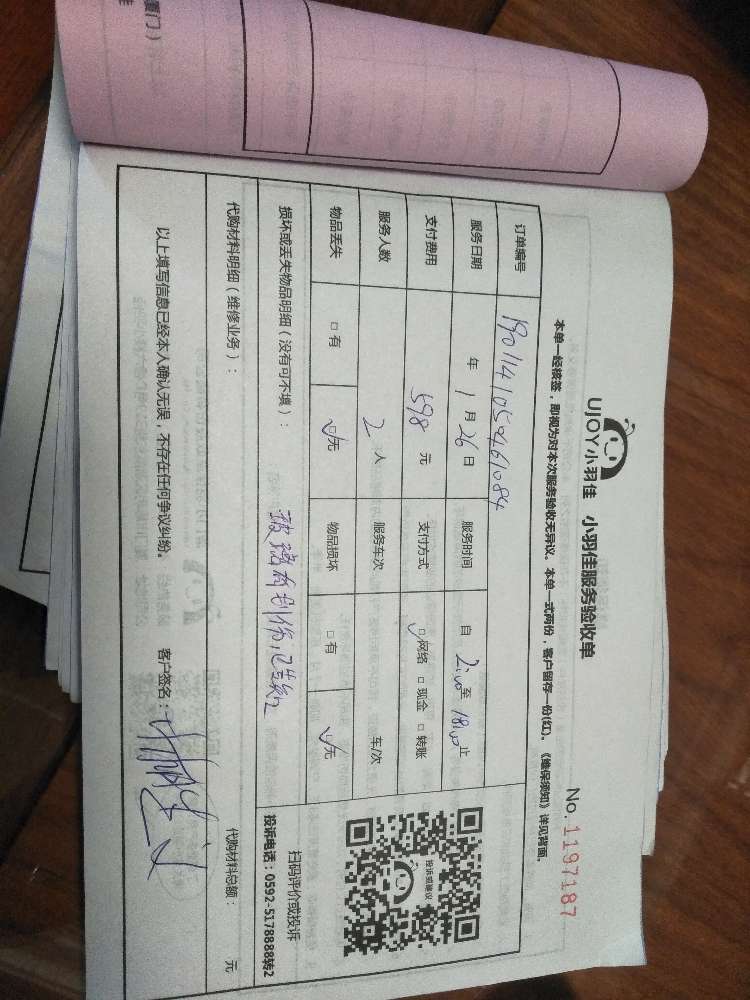 厦门）
UJOY小羽佳 小羽佳服务验收单
No. 1197187
本单一经核签，即视为对本次服务验收无异议。本单一式两份，客户留存一份(红)。《维保须知》详见背面。
订单编号
服务日期 年 1 月 26 日 服务时间 自 至 18:00 止
支付费用 598 元 支付方式 ☑网络 □现金 □转账
服务人数 2 人 服务车次 车/次
物品丢失 □有 ☑无 物品损坏 □有 ☑无
投诉或建议
扫码评价或投诉
投诉电话：0592-5178888转2
损坏或丢失物品明细（没有可不填）： 玻璃有划伤，已告知
代购材料明细（维修业务）： 代购材料总额： 元
以上填写信息已经本人确认无误，不存在任何争议纠纷。 客户签名：